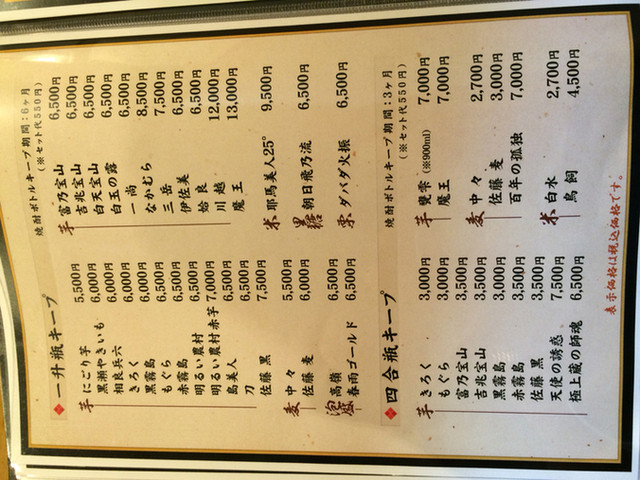 一升瓶キープ
焼酎ボトルキープ期間:6ヶ月
(※セット代550円)
芋
にごり芋 5,500円
黒瀬やきいも 6,000円
相良兵六 6,000円
きろく 6,000円
黒霧島 6,000円
もぐら 6,500円
赤霧島 6,500円
明るい農村 6,500円
明るい農村 赤芋 7,000円
島美人 6,500円
刀 6,500円
佐藤 黒 7,500円
麦
中々 5,500円
佐藤 麦 6,000円
泡盛
高嶺 6,500円
春雨ゴールド 6,500円
芋
富乃宝山 6,500円
吉兆宝山 6,500円
白天宝山 6,500円
白玉の露 6,500円
一尚 6,500円
なかむら 8,500円
三岳 7,500円
伊佐美 6,500円
姶良 6,500円
川越 12,000円
魔王 13,000円
米
耶馬美人25° 9,500円
黒糖
朝日飛乃流 6,500円
栗
ダバダ火振 6,500円
四合瓶キープ
焼酎ボトルキープ期間:3ヶ月
(※セット代550円)
芋
きろく 3,000円
もぐら 3,000円
富乃宝山 3,500円
吉兆宝山 3,500円
黒霧島 3,000円
赤霧島 3,500円
佐藤 黒 3,500円
天使の誘惑 7,500円
極上蔵の師魂 6,500円
芋
甕雫(※900ml) 7,000円
魔王 7,000円
麦
中々 2,700円
佐藤 麦 3,000円
百年の孤独 7,000円
米
白水 2,700円
鳥飼 4,500円
表示価格は税込価格です。